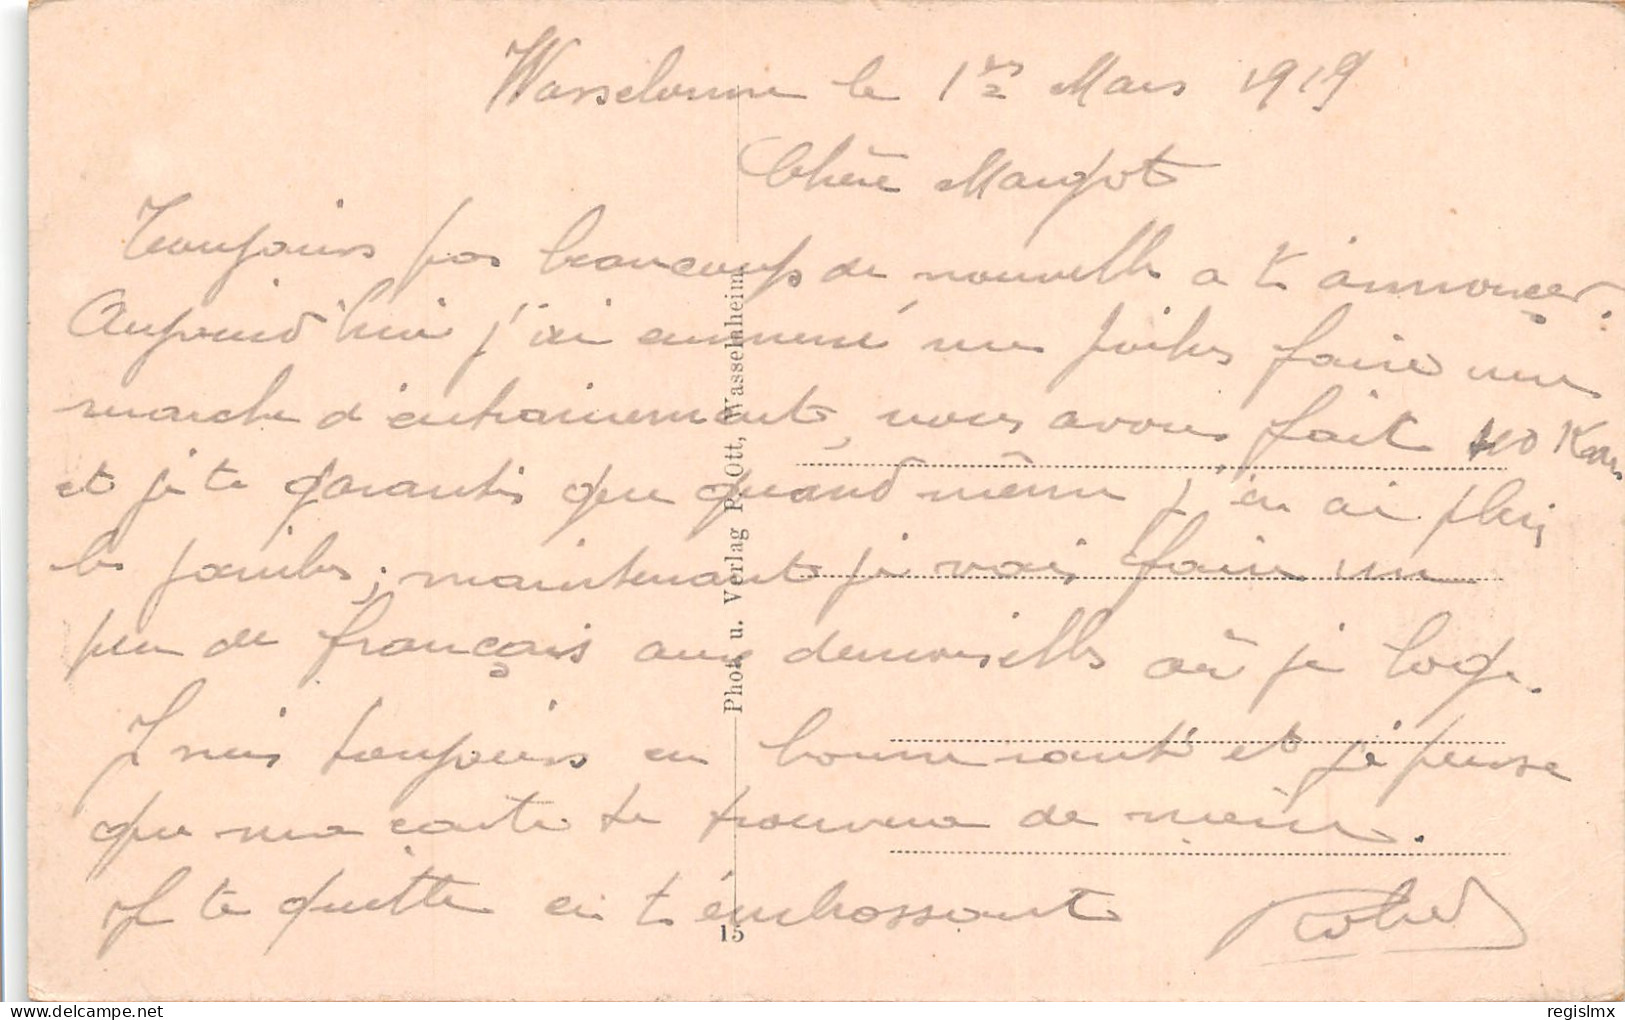 Wasselonne le 1er Mars 1919
Chère Margot
Toujours pas beaucoup de nouvelle a t'annonçer.
Aujourd'hui j'ai emmené mes poilus faire une
marche d'entrainement, nous avons fait 40 Kms
et je te garantis que quand même j'en ai plein
les jambes; maintenant je vais faire un
peu de français aux demoiselles où je loge.
Je suis toujours en bonne santé et je pense
que ma carte te trouvera de même.
Je te quitte en t'embrassant
Phot. u. Verlag P. Ott, Wasselnheim
15